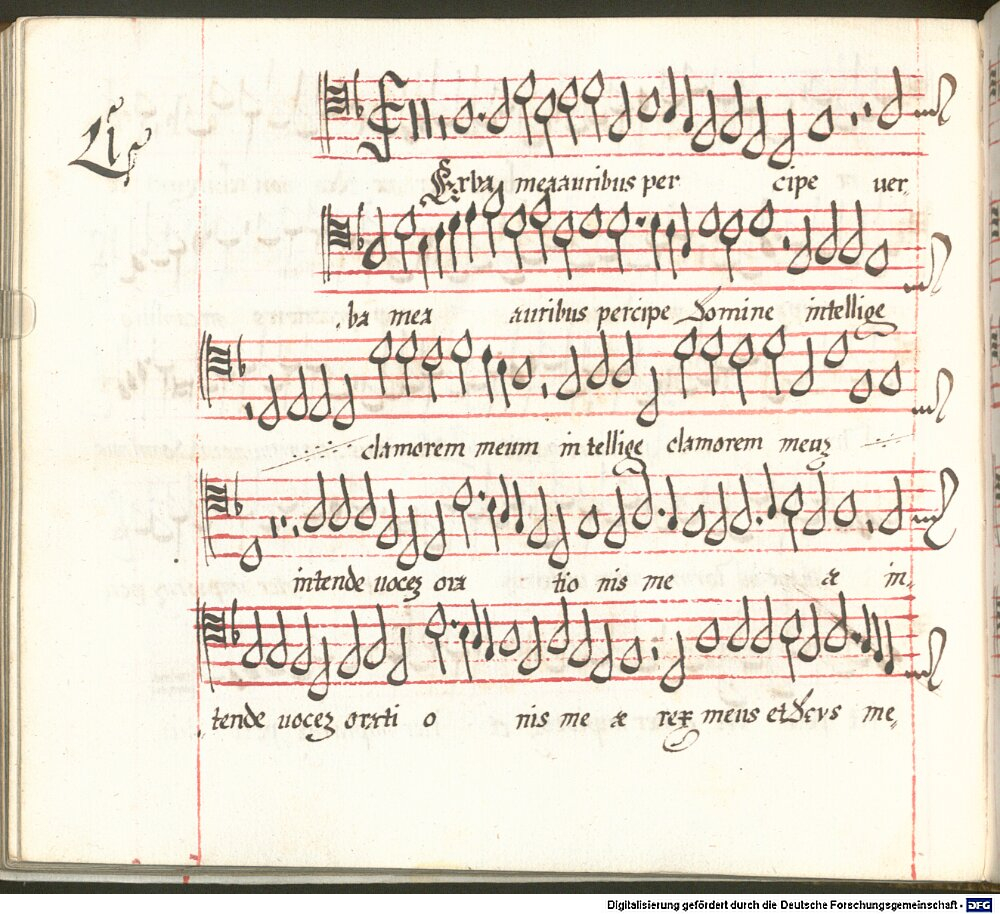 Verba mea auribus per cipe ver,
,ba mea auribus percipe Domine intellige
clamorem meum in tellige clamorem meuȝ
intende voceȝ ora tio nis me æ in,
,tende voceȝ orati o nis me æ rex meus et deus me,
Digitalisierung gefördert durch die Deutsche Forschungsgemeinschaft - DFG